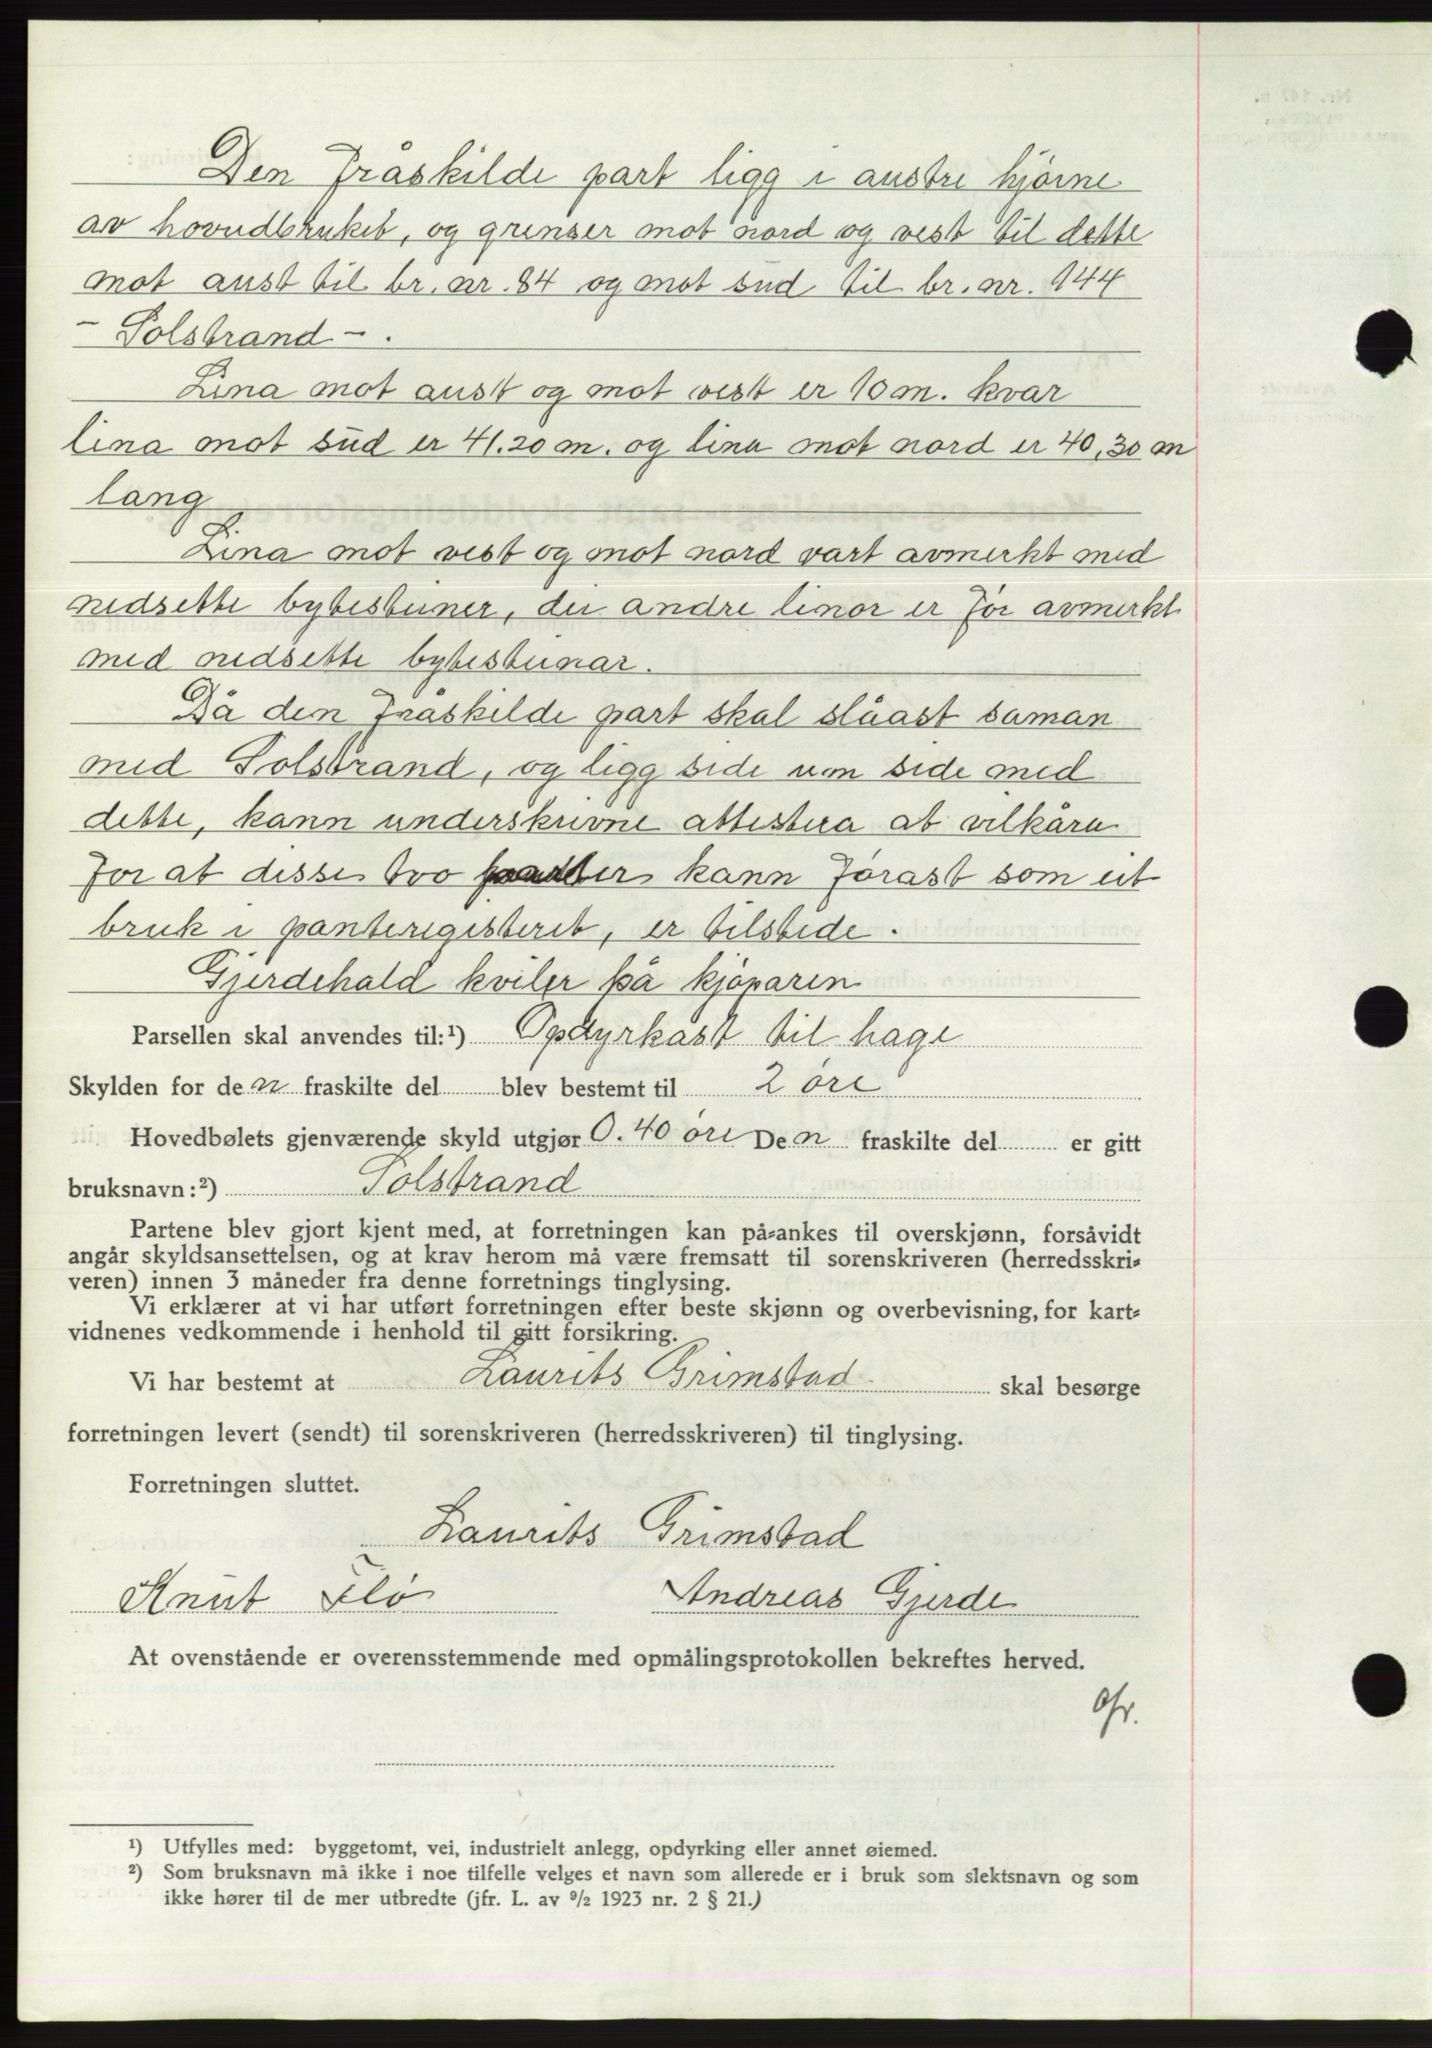 Den fråskilde part ligg i austre hjørne
av hovudbruket, og grenser mot nord og vest til dette
mot aust til br. nr. 84 og mot sud til br. nr. 144
- Solstrand - .
Lina mot aust og mot vest er 10 m. kvar
lina mot sud er 41.20 m. og lina mot nord er 40,30 m
lang
Lina mot vest og mot nord vart avmerkt med
nedsette bytesteiner, dei andre linor er før avmerkt
med nedsette bytesteinar.
Då den fråskilde part skal slåast saman
med Solstrand, og ligg side um side med
dette, kann underskrivne attestera at vilkåra
for at disse tvo parter kann førast som eit
bruk i panteregisteret, er tilstede.
Gjerdehald kviler på kjøparen
Parsellen skal anvendes til:¹) Opdyrkast til hage
Skylden for den fraskilte del blev bestemt til 2 øre
Hovedbølets gjenværende skyld utgjør 0.40 øre Den fraskilte del er gitt
bruksnavn:²) Solstrand
Partene blev gjort kjent med, at forretningen kan på-ankes til overskjønn, forsåvidt
angår skyldsansettelsen, og at krav herom må være fremsatt til sorenskriveren (herredsskri-
veren) innen 3 måneder fra denne forretnings tinglysing.
Vi erklærer at vi har utført forretningen efter beste skjønn og overbevisning, for kart-
vidnenes vedkommende i henhold til gitt forsikring.
Vi har bestemt at Laurits Grimstad skal besørge
forretningen levert (sendt) til sorenskriveren (herredsskriveren) til tinglysing.
Forretningen sluttet.
Laurits Grimstad
Knut Flø Andreas Gjerde
At ovenstående er overensstemmende med opmålingsprotokollen bekreftes herved.
¹) Utfylles med: byggetomt, vei, industrielt anlegg, opdyrking eller annet øiemed.
²) Som bruksnavn må ikke i noe tilfelle velges et navn som allerede er i bruk som slektsnavn og som
ikke hører til de mer utbredte (jfr. L. av 9/2 1923 nr. 2 § 21.)